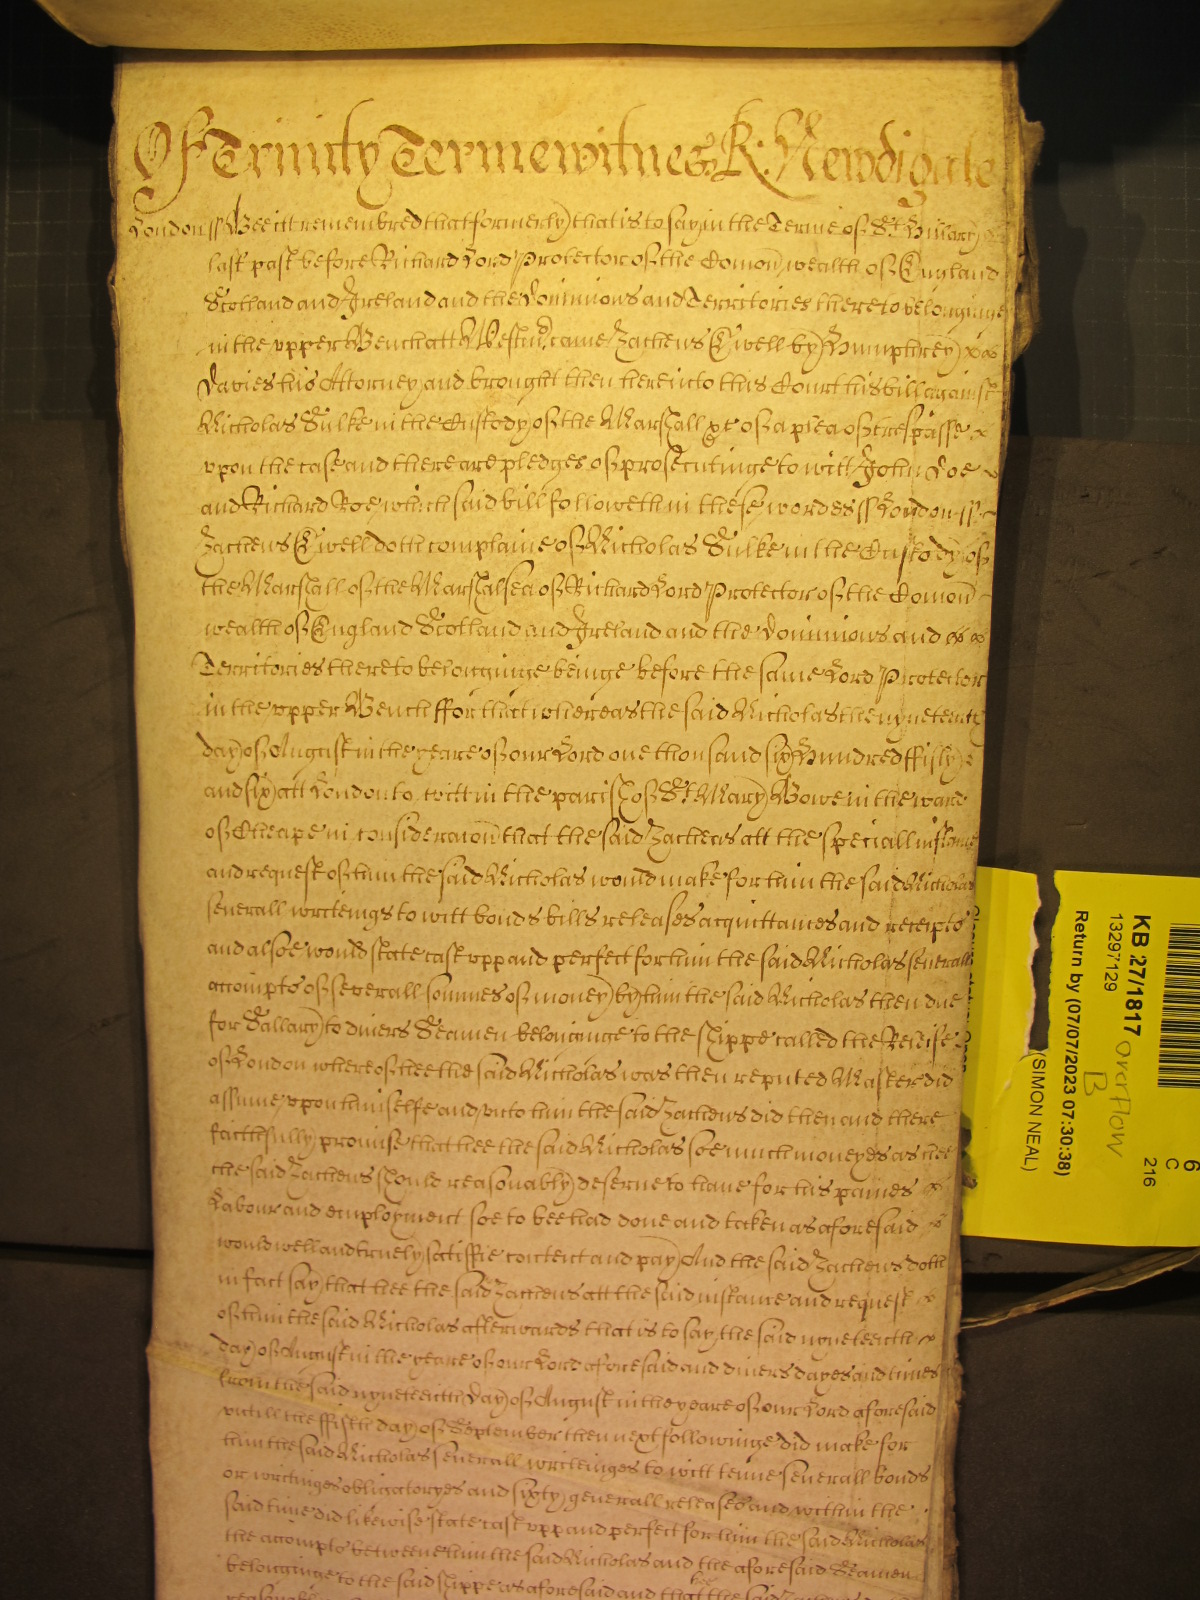 Of Trinity Terme witnes R: Newdigate
London ss Bee it remembred that formerly that is to say in the Terme of St Hillary
last past before Richard Lord Protector of the Comon wealth of England
Scotland and Ireland and the Dominions and Territories thereto belonginge
in the upper Bench att Westmr came Zacheus Ewell by Humphrey
Davies his Attorney and brought then here into this Court his bill against
Nicholas Fulke in the Custody of the Marshall &c of a plea of trespasse
upon the case and there are pledges of prosecutinge to witt John Doe
and Richard Roe which said bill followeth in these wordes ss London ss
Zacheus Ewell doth complaine of Nicholas Fulke in the Custody of
the Marshall of the Marshalsea of Richard Lord Protector of the Comon
wealth of England Scotland and Ireland and the Dominions and
Territories thereto belonginge beinge before the same Lord Protector
in the upper Bench ffor that whereas the said Nicholas the nyneteenth
day of August in the yeare of our Lord one thousand six Hundred ffifty
and six att London to witt in the parish of St Mary Bowe in the ward
of Cheape in consideracon that the said Zacheus att the speciall instance
and request of him the said Nicholas would make for him the said Nicholas
severall writeings to witt bonds bills releases acquittances and receipts
and alsoe would state cast upp and perfect for him the said Nicholas severall
accompts of severall sommes of money by him the said Nicholas then due
for Sallary to divers Seamen belonginge to the shippe called the
of London whereof hee the said Nicholas was then reputed Master did
assume upon himselfe and unto him the said Zacheus did then and there
faithfully promise that hee the said Nicholas soe much moneyes as hee
the said Zacheus should reasonably deserve to have for his paines
Labour and employment soe to bee had done and taken as aforesaid
would well and truely satisfie content and pay And the said Zacheus doth
in fact say that hee the said Zacheus att the said instance and request
of him the said Nicholas afterwards that is to say the said nyneteenth
day of August in the yeare of our Lord aforesaid and divers dayes and times
from the said nyneteenth Day of August in the yeare of our Lord aforesaid
untill the ffifth day of September then next followinge did make for
him the said Nicholas severall writeinges to witt tenne severall bonds
or writinges obligatoryes and sixty generall releases and within the
said time did likewise state cast upp and perfect for him the said Nicholas
the accompts betweene him the said Nicholas and the aforesaid Seamen
belonginge to the said shippe as aforesaid and that hee the said Zacheus
KB 27/1817 overflow
13297129 B
Return by (07/07/2023 07:30:38)
(SIMON NEAL)
6
C
216